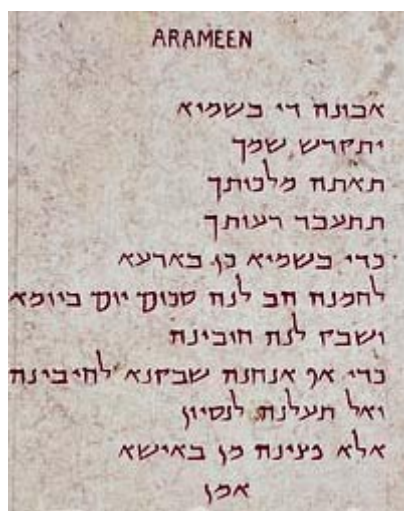 ARAMEEN
אבונה די בשמיא
יתקדש שמך
תאתה מלכותך
תתעבד רעותך
כדי בשמיא כן בארעא
לחמנה הב לנה סכום יום ביומא
ושבק לנה חובינה
כדי אף אנחנה שבקנא לחיבינה
ואל תעלנה לנסיון
אלא פצינה מן באישא
אמן